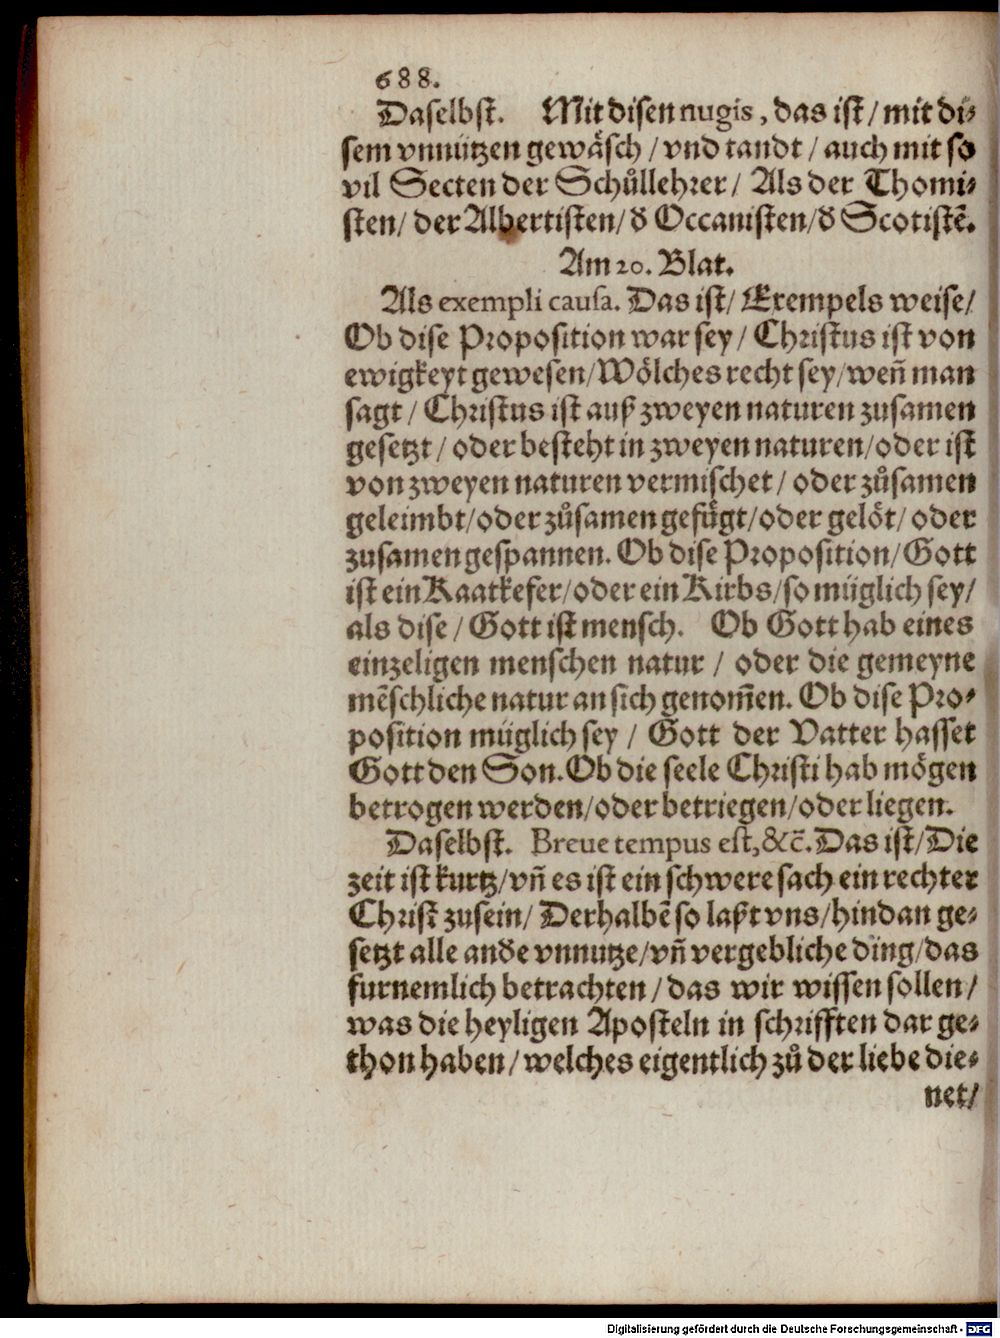 688.
Daselbst. Mit disen nugis, das ist/ mit di⸗
sem vnnützen gewäsch / vnd tandt / auch mit so
vil Secten der Schůllehrer/ Als der Thomi⸗
sten/ der Albertisten/ ð Occanisten/ð Scotistē.
Am 20. Blat.
Als exempli causa. Das ist/ Exempels weise/
Ob dise Proposition war sey/ Christus ist von
ewigkeyt gewesen/Wölches recht sey/weñ man
sagt / Christus ist auß zweyen naturen zusamen
gesetzt / oder besteht in zweyen naturen/oder ist
von zweyen naturen vermischet / oder zůsamen
geleimbt/oder zůsamen gefügt/oder gelöt/ oder
zusamen gespannen. Ob dise Proposition/Gott
ist ein Kaatkefer/oder ein Kirbs/so müglich sey/
als dise / Gott ist mensch. Ob Gott hab eines
einzeligen menschen natur / oder die gemeyne
mēschliche natur an sich genom̄en. Ob dise Pro⸗
position müglich sey / Gott der Vatter hasset
Gott den Son. Ob die seele Christi hab mögen
betrogen werden/oder betriegen/oder liegen.
Daselbst. Breue tempus est,&c̄. Das ist/Die
zeit ist kurtz/vñ es ist ein schwere sach ein rechter
Christ zusein/ Derhalbē so laßt vns/hindan ge⸗
setzt alle anðe vnnutze/vñ vergebliche ding/das
furnemlich betrachten / das wir wissen sollen/
was die heyligen Aposteln in schrifften dar ge⸗
thon haben / welches eigentlich zů der liebe die⸗
net/
Digitalisierung gefördert durch die Deutsche Forschungsgemeinschaft - DFG